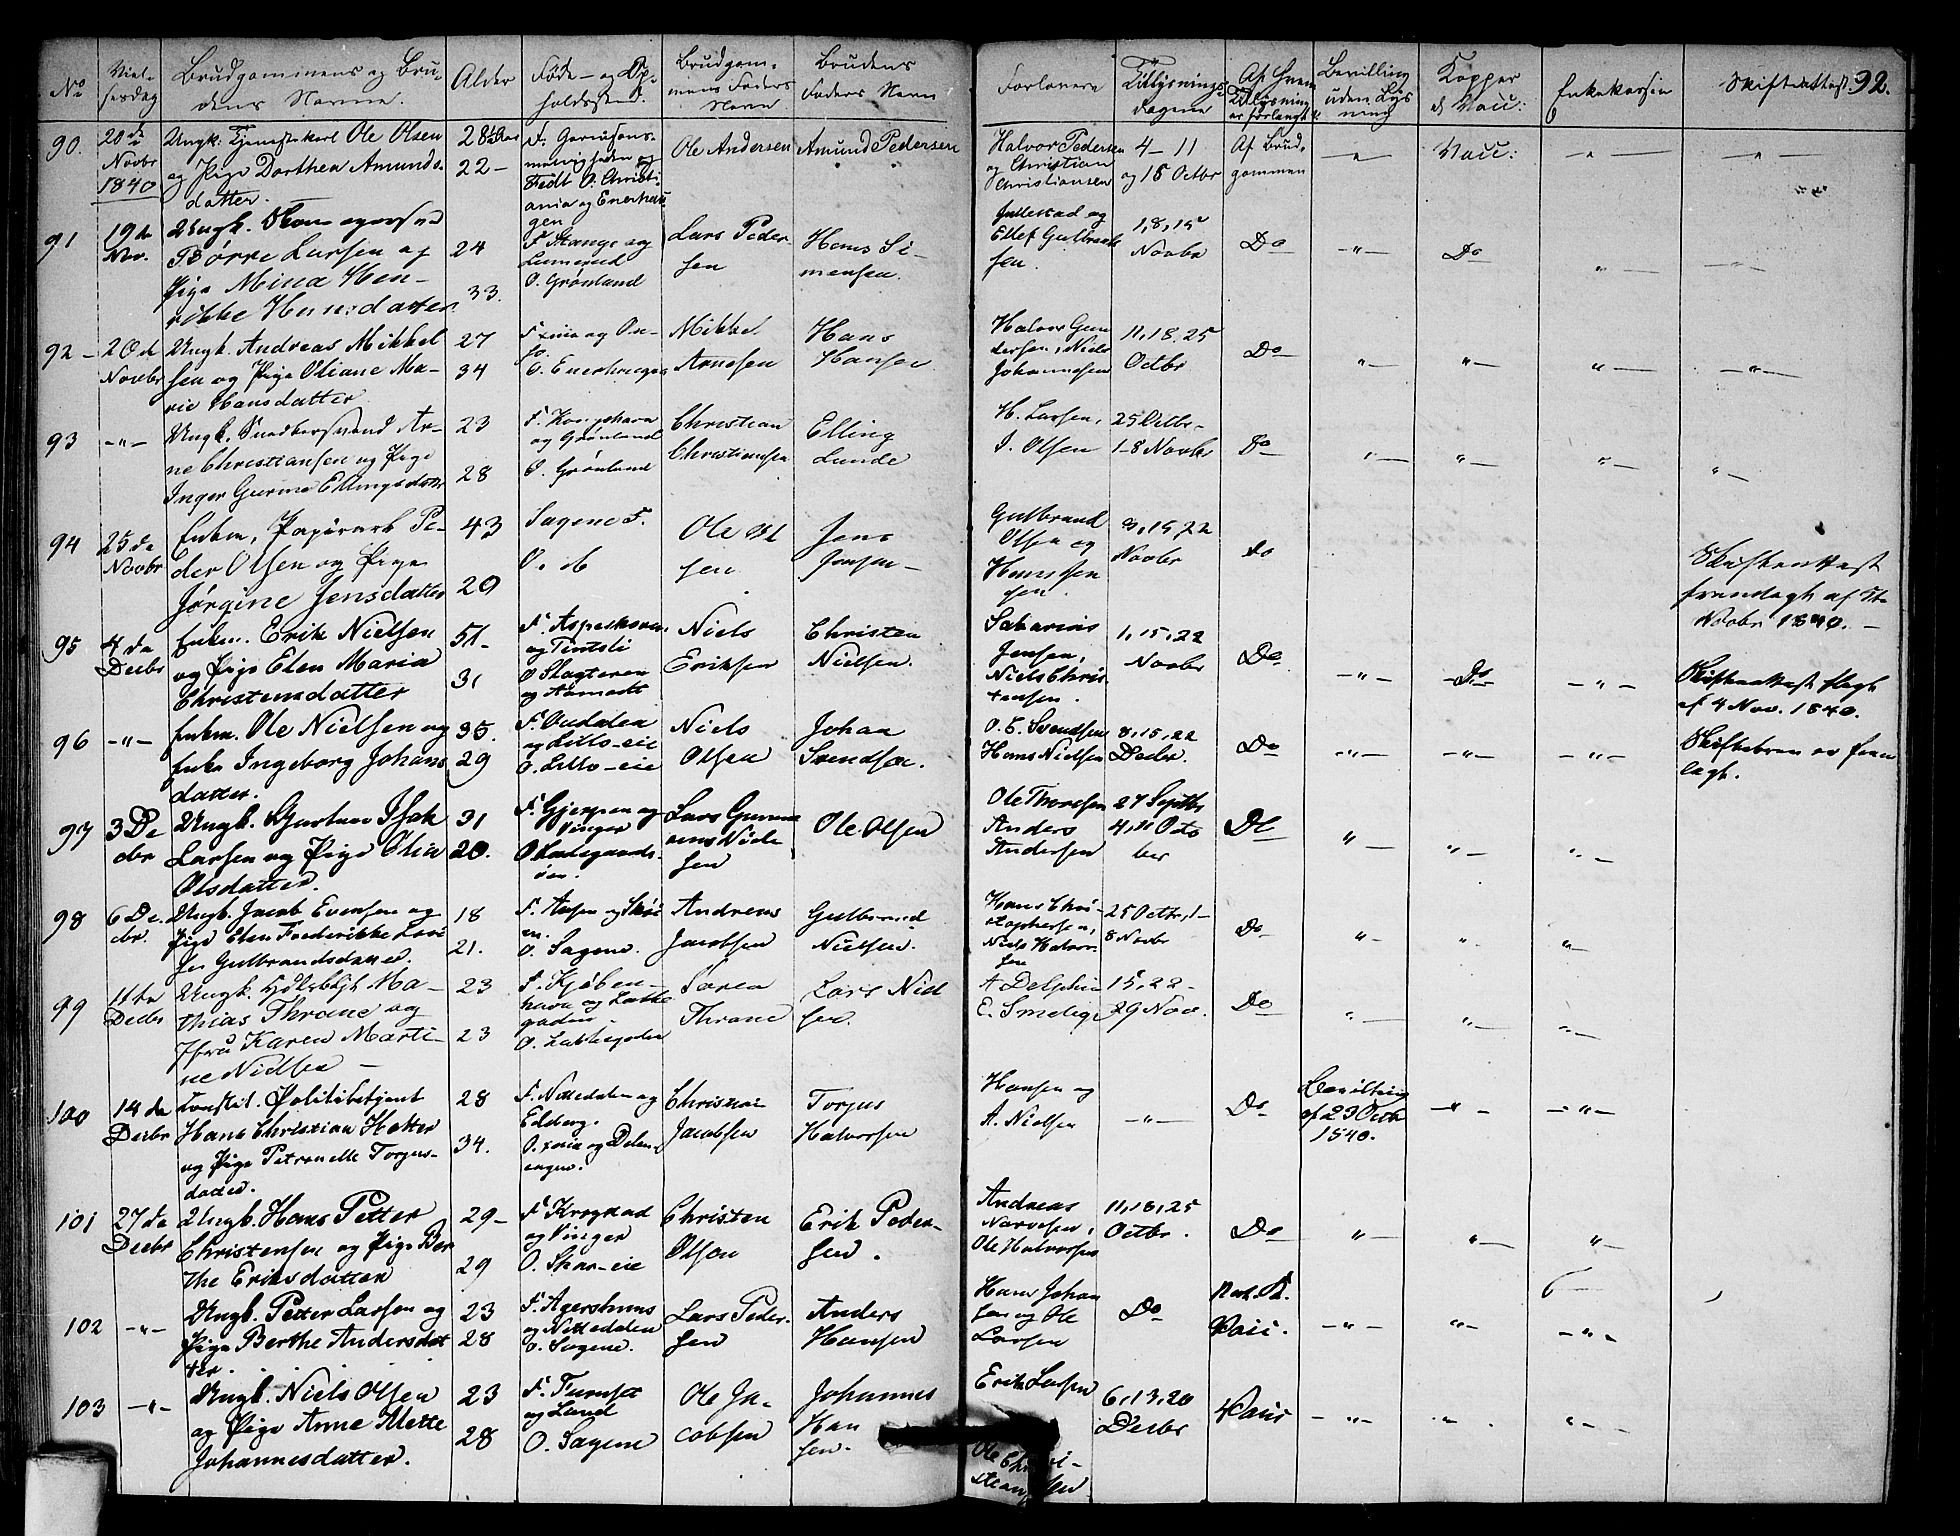 No
Viel-
sesdag
Brudgommens og Bru-
dens Navne.
Alder
Føde- og Op-
holdssted.
Brudgom-
mens Faders
Navn
Brudens
Faders Navn
Forlovere
Tillysnings-
dagene
Bevilling
uden Lys
ning
Kopper
el. Vacc:
Enkekassen
Skifteattest
92.
90.
20de
Novbr
1840
Ungk. Tjenestekarl Ole Olsen
og Pige Dorthea Amunds-
datter.
28
22-
Ole Andersen
Amund Pedersen
Halvor Pedersen
og Christian
Christiansen
4- 11
og 18 Octbr
Af Brud-
gommen
Vacc:
91
19de
Nov.
Børre Larsen og
Pige Mina Hen-
rikke Hansdatter
24
33.
F. Stange og
O. Grønland
Lars Peder-
sen
Hans Si-
mensen
Ellef Gulbrand
sen.
1, 8, 15
Novbr
Do
Do
92-
20de
Novbr
Ungk. Andreas Mikkel
sen og Pige Oliane Ma-
rie Hansdatter
27
34
O. Enerhougen
Mikkel
Arnesen
Hans
Hansen
Halvor Gun
dersen, Niels
Johannesen
11, 18, 25
Octbr
Do
93
Ungk. Snedkersvend Ar-
ne Christiansen og Pige
Inger Gurine Ellingsdatter
23
28
og Grønland
O. Grønland
Christian
Christiansen
Elling
Lunde
H. Larsen,
I. Olsen
25 Octbr-
1-8 Novbr
Do
94
25de
Novbr
Enkem. Papirarb Pe-
der Olsen og Pige
Jørgine Jensdatter
43
29
Sagene F.
O. do
Ole Ol
sen
Jens
Jensen-
Gulbrand
Olsen og
Hans
sen.
8, 15, 22
Novbr
Do
Skifteattest
fremlagt af
Novbr 1840.-
95
4de
Decbr
Enkem. Erik Nielsen
og Pige Elen Maria
Christensdatter
51-
31
Niels
Eriksen
Christen
Nielsen.
Sakarias
Jensen,
Niels Chris
tensen.
1, 15, 22
Novbr
Do
Do
Skifteattest flagt
af 4 Nov. 1840.
96
Enkem. Ole Nielsen og
Enke Ingeborg Johans
datter.
35.
29
og Lillo-eie
O. Lillo-eie
Niels
Olsen
Johan
Svendsen.
O. E. Svendsen
Hans Nielsen
8, 15, 22
Decbr.
Do
Skiftebrev er frem
lagt.
97
3 De
cbr
Ungk. Gustav Isak
Larsen og Pige Olia
Olsdatter.
31
20.
F. Gjerpen og
Vinger
O. Ladegaards-
øen.
Ole Olsen
Ole Thoresen
Anders
Andersen
27 Septbr
4, 11 Octo
ber
Do
98
6 De-
cbr.
Ungk. Jacob Evensen og
Pige Elen Frederikke Lovi
se Gulbrandsdatter.
18
21.
O. Sagene.
Andreas
Jacobsen
Gulbrand
Nielsen.
Hans Chri-
stophersen,
Niels Halvor-
sen
25 Octbr, 1-
8 Novbr
Do
99
11te
Decbr
Ungk. Hølsbergh Ma-
thias Thrane og
Jfru Karen Marti-
ne Nielsen -
23
23
F. Kjøben-
havn og Lakke
gaden
O. Lakkegaden
Søren
Thrane
Lars Niel
sen.
A Delphin
E. Smelig
15, 22-
29 Nov.
Do
100
14de
Decbr
Constit. Politibetjent
Hans Christian Hetter
og Pige Petronelle Torgus-
datter.
28
34.
F. Nittedalen og
Christian
Jacobsen
Torgus
Halvorsen
Hansen og
A. Nielsen
Do
Bevilling
af 23 Octbr
1840.
101
27de
Decbr
Ungk. Hans Petter
Christensen og Pige Ber
the Eriksdatter
29-
29
F. Krogstad
og Vinger
O. Skar-eie
Christen
Olsen
Erik Peder-
sen.
Andreas
Narvesen,
Ole Halvorsen
11, 18, 25
Octbr.
Do
102
Ungk. Petter Larsen og
Pige Berthe Andersdat
ter.
23
28
F. Agershuus
og Nittedalen
O. Sagene.
Lars Peder-
sen
Anders
Hansen
Hans Johan
sen og Ole
Larsen
Do
Vacc.
103
Ungk. Niels Olsen
og Pige Anne Mette
Johannesdatter.
23
28
og Land
O. Sagene
Ole Ja-
cobsen
Johannes
Han
sen.
Erik Larsen
Ole Chri-
stiansen
6, 13, 20
Decbr
Vacc